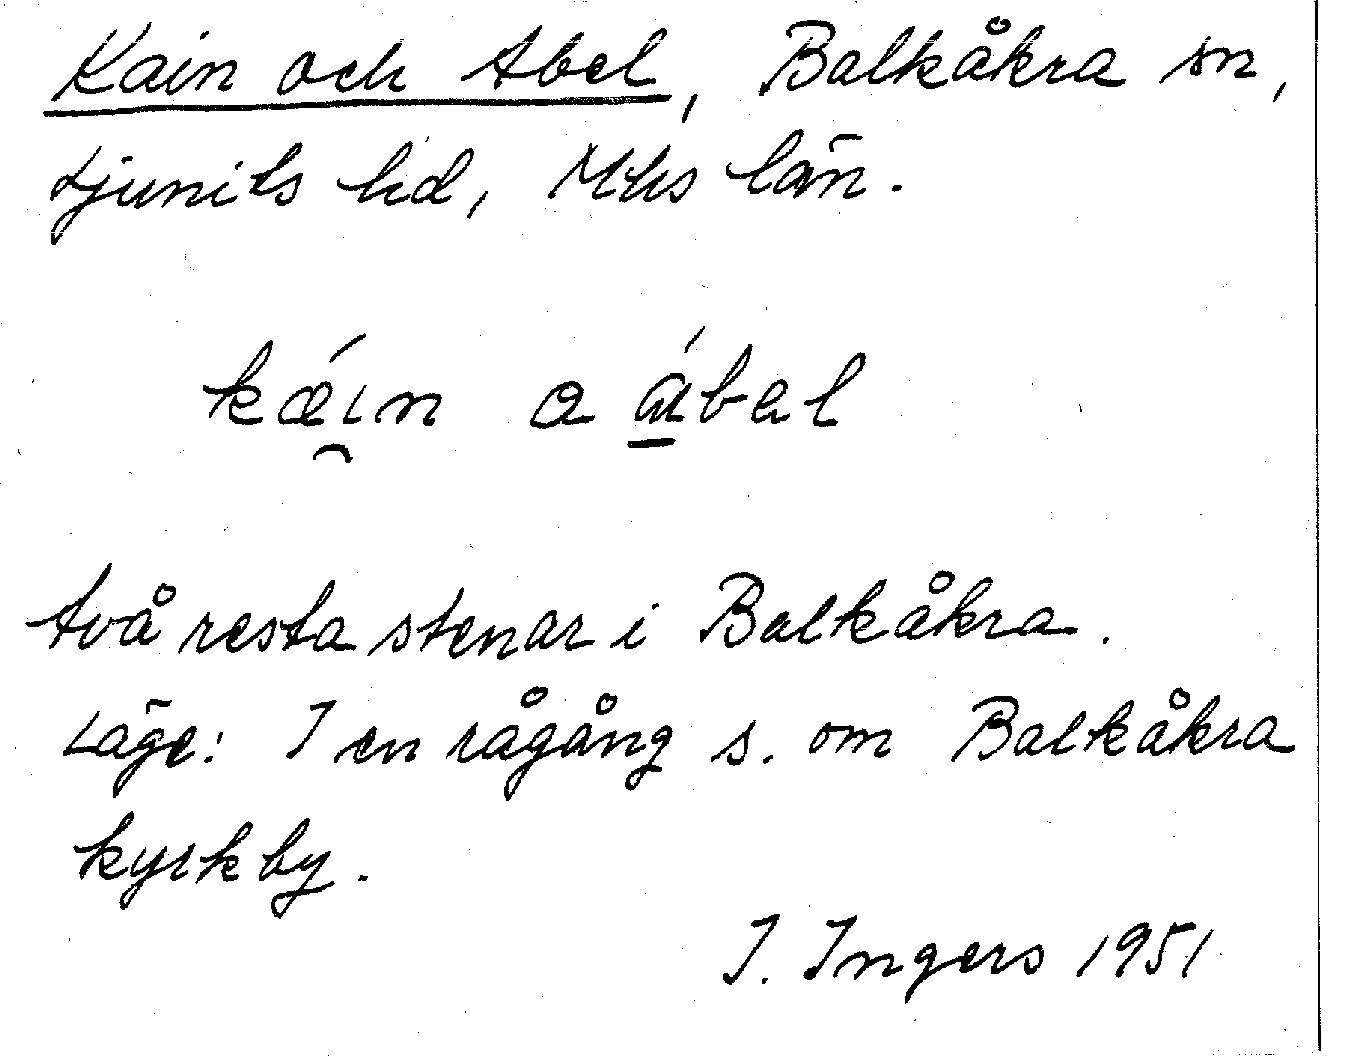 Kain och Abel, Balkåkra sn,
Ljunits hd, Mhs län.
kǽi̯n a á̱bal
två resta stenar i Balkåkra.
Läge: I en rågång s. om Balkåkra
kyrkby.
I. Ingers 1951